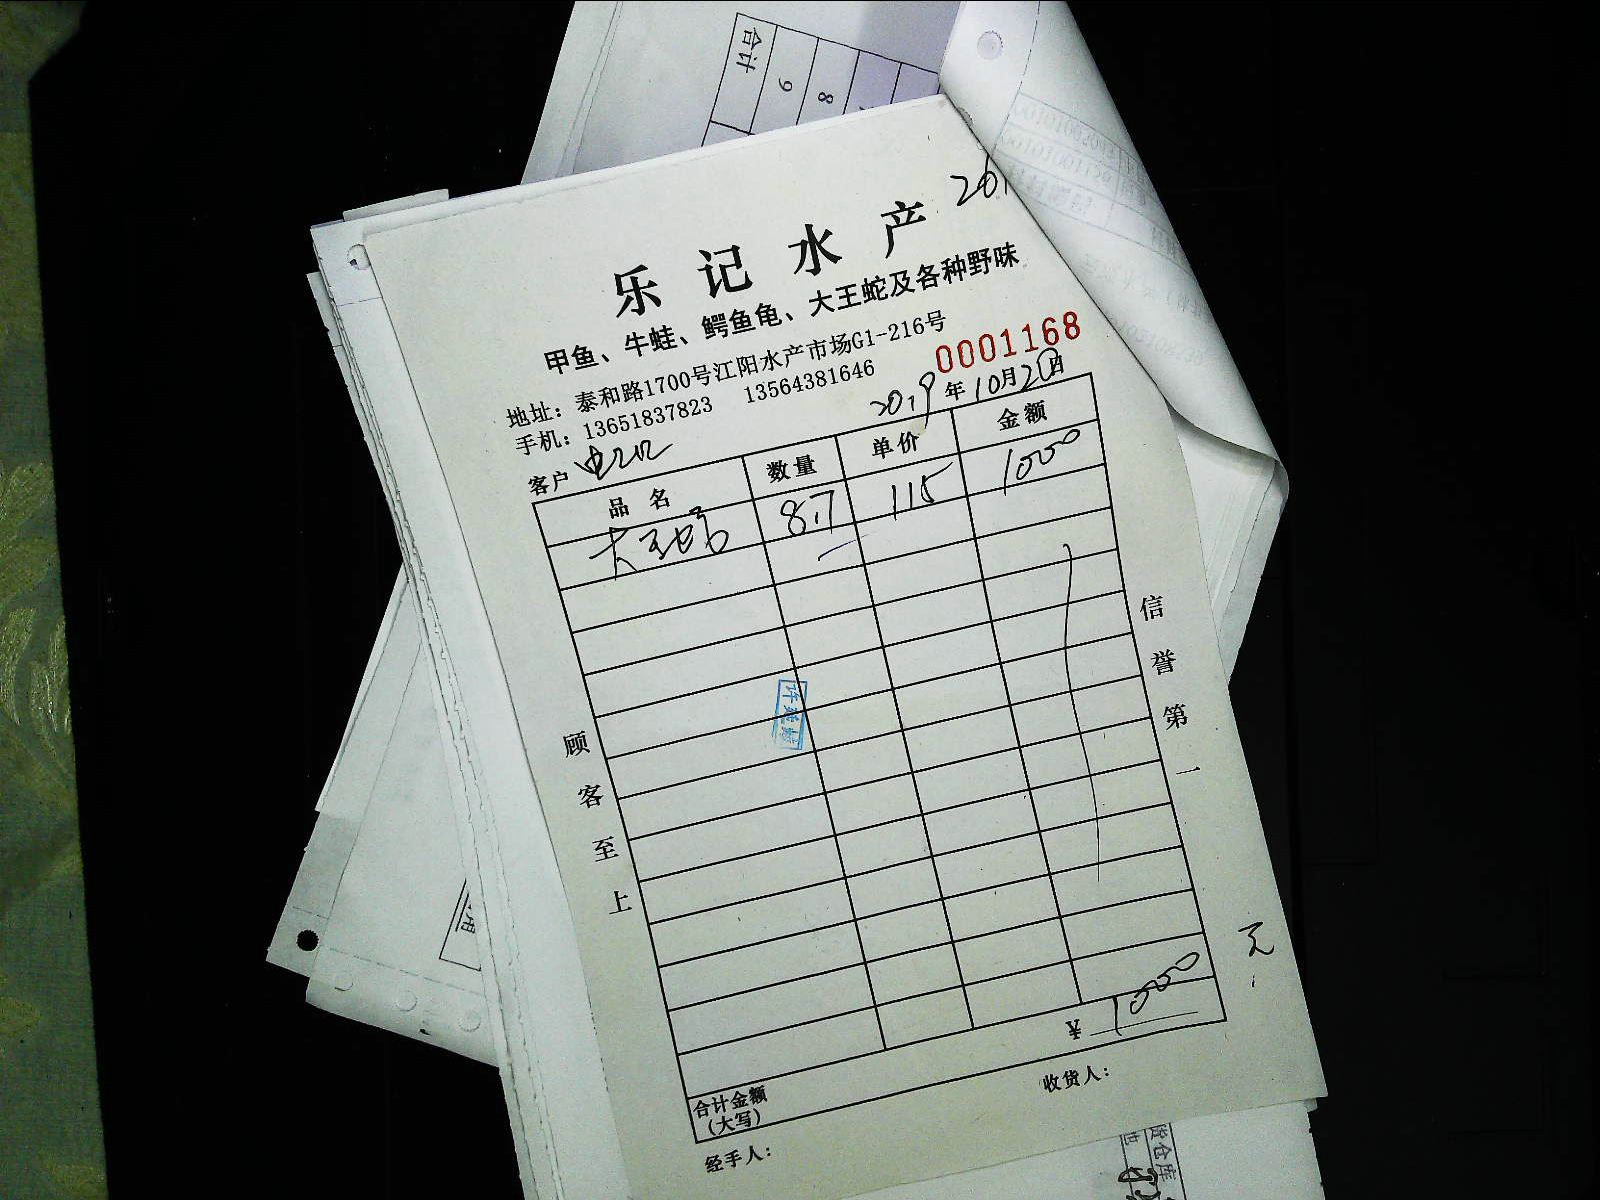 合计
9
8
201
乐记水产
甲鱼、牛蛙、鳄鱼龟、大王蛇及各种野味
地址：泰和路1700号江阳水产市场G1-216号
手机：13651837823 13564381646
0001168
2019年10月20日
客户
品名 数量 单价 金额
大王蛇 8.7 115 1000
顾客至上
信誉第一
许
元
¥ 1000
合计金额
（大写）
收货人：
经手人：